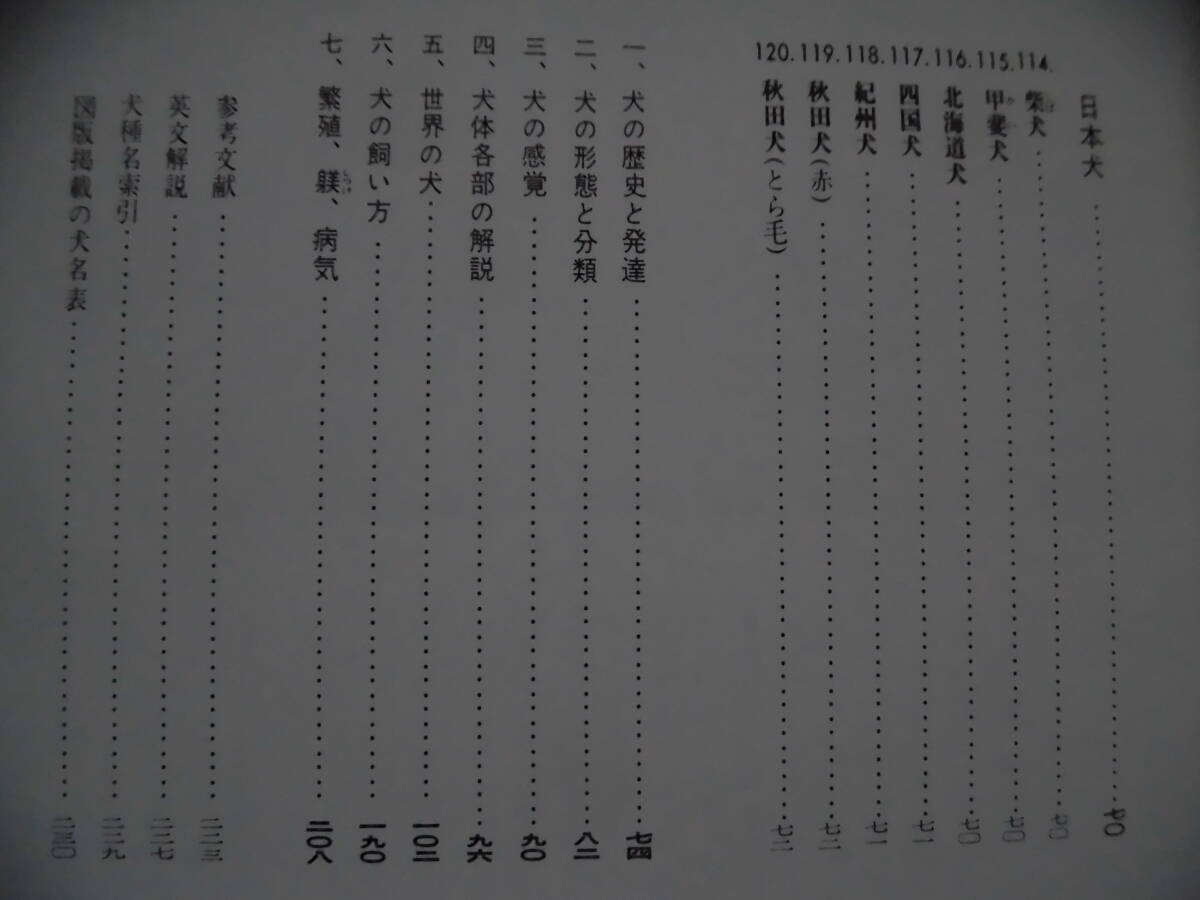 日本犬……七〇
114. 柴犬……七〇
115. 甲斐犬……七〇
116. 北海道犬……七〇
117. 四国犬……七一
118. 紀州犬……七一
119. 秋田犬(赤)……七二
120. 秋田犬(とら毛)……七二
一、犬の歴史と発達……七四
二、犬の形態と分類……八二
三、犬の感覚……九〇
四、犬体各部の解説……九六
五、世界の犬……一〇二
六、犬の飼い方……一九〇
七、繁殖、躾、病気……二〇八
参考文献……二二三
英文解説……二二七
犬種名索引……二二九
図版掲載の犬名表……二三〇